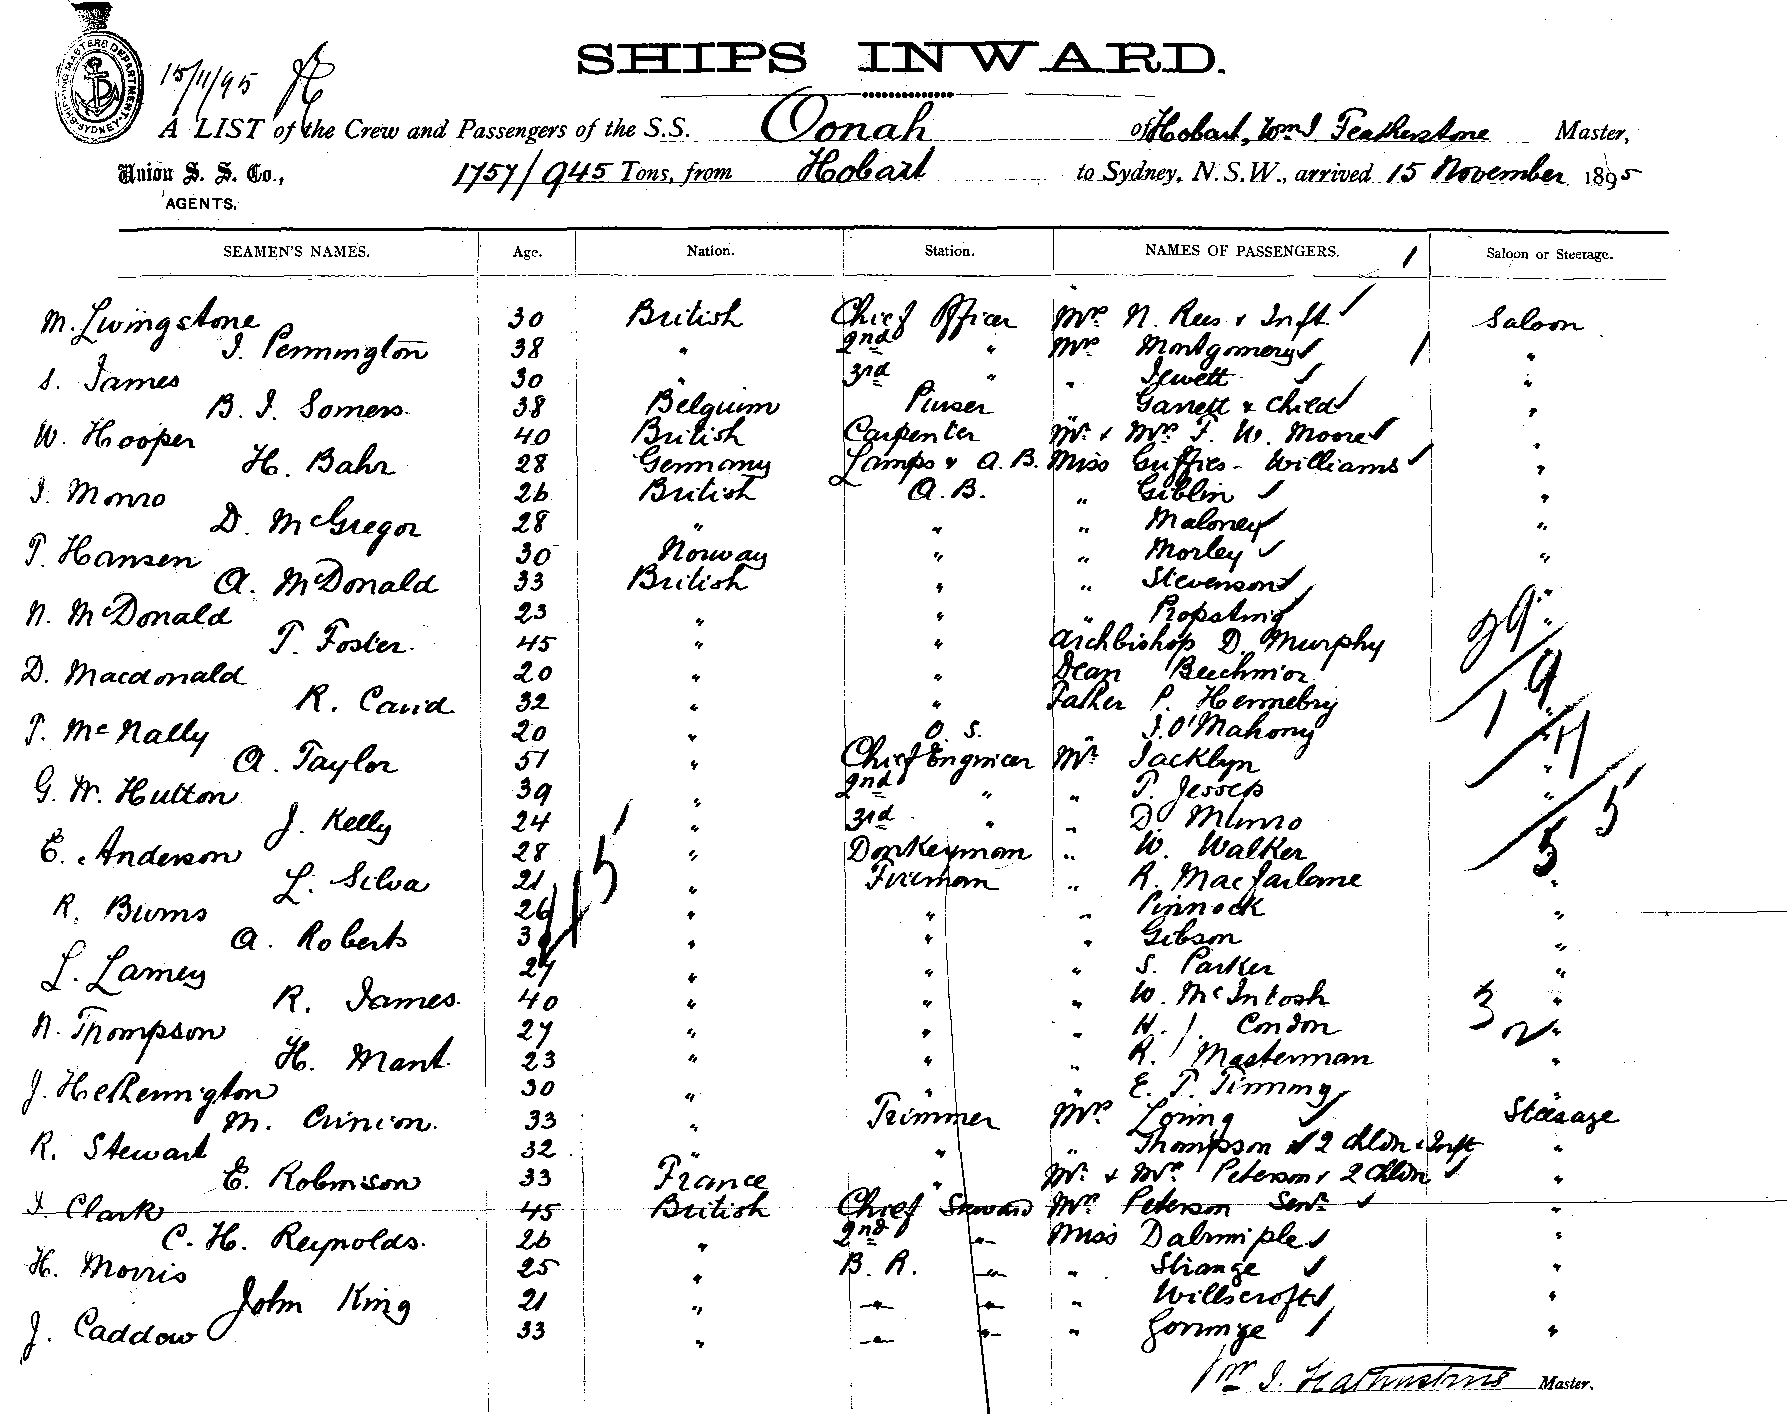 SHIPS INWARD.
15/11/95
SHIPPING MASTERS DEPARTMENT SYDNEY
A LIST of the Crew and Passengers of the S.S. Oonah of Hobart, Wm J. Featherstone Master,
Union S. S. Co., AGENTS. 1757/945 Tons, from Hobart to Sydney, N.S.W., arrived 15 November 1895
SEAMEN'S NAMES. Age. Nation. Station. NAMES OF PASSENGERS. 1 Saloon or Steerage.
M. Livingstone 30 British Chief Officer Mrs N. Rees & Inft. Saloon
J. Pennington 38 " 2nd " Mrs Montgomery "
S. James 30 " 3rd " " Jewett "
B. J. Somers 38 Belgium Purser Garrett & Child "
W. Hooper 40 British Carpenter Mr. & Mrs T. W. Moore "
H. Bahr 28 Germany Lamps & A. B. Miss Griffies-Williams "
J. Monro 26 British A. B. " Giblin "
D. McGregor 28 " " " Maloney "
T. Hansen 30 Norway " " Morley "
A. McDonald 33 British " " Stevenson "
N. McDonald 23 " " " Propsting "
T. Foster 45 " " Archbishop D. Murphy
D. Macdonald 20 " " Dean Beechinor
R. Caird 32 " " Father P. Hennebry "
T. McNally 20 " O. S. " J. O'Mahony "
A. Taylor 51 " Chief Engineer Mr Jacklyn "
G. W. Hutton 39 " 2nd " " T. Jessep "
J. Kelly 24 " 3rd " " D. Munro
E. Anderson 28 " Donkeyman " W. Walker
L. Silva 21 " Fireman " R. Macfarlane "
R. Burns 26 " " " Pinnock "
A. Roberts " " " Gibson "
L. Lamey 27 " " " S. Parker "
R. James 40 " " " W. McIntosh "
N. Thompson 27 " " " H. J. Condon "
H. Mant 23 " " " R. Masterman "
J. Hetherington 30 " " " E. T. Timmny "
M. Crinion 33 " Trimmer Mrs Loring Steerage
R. Stewart 32 " " " Thompson & 2 Chldn & Inft "
E. Robinson 33 France " Mr. & Mrs Peterson & 2 Chldn "
J. Clark 45 British Chief Steward Mrs Peterson Senr "
C. H. Reynolds 26 " 2nd " Miss Dalrimple "
H. Morris 25 " B. R. " " Strange "
John King 21 " " " " Williscroft "
J. Caddow 33 " " " " Gorringe "
Wm J. Featherstone Master.